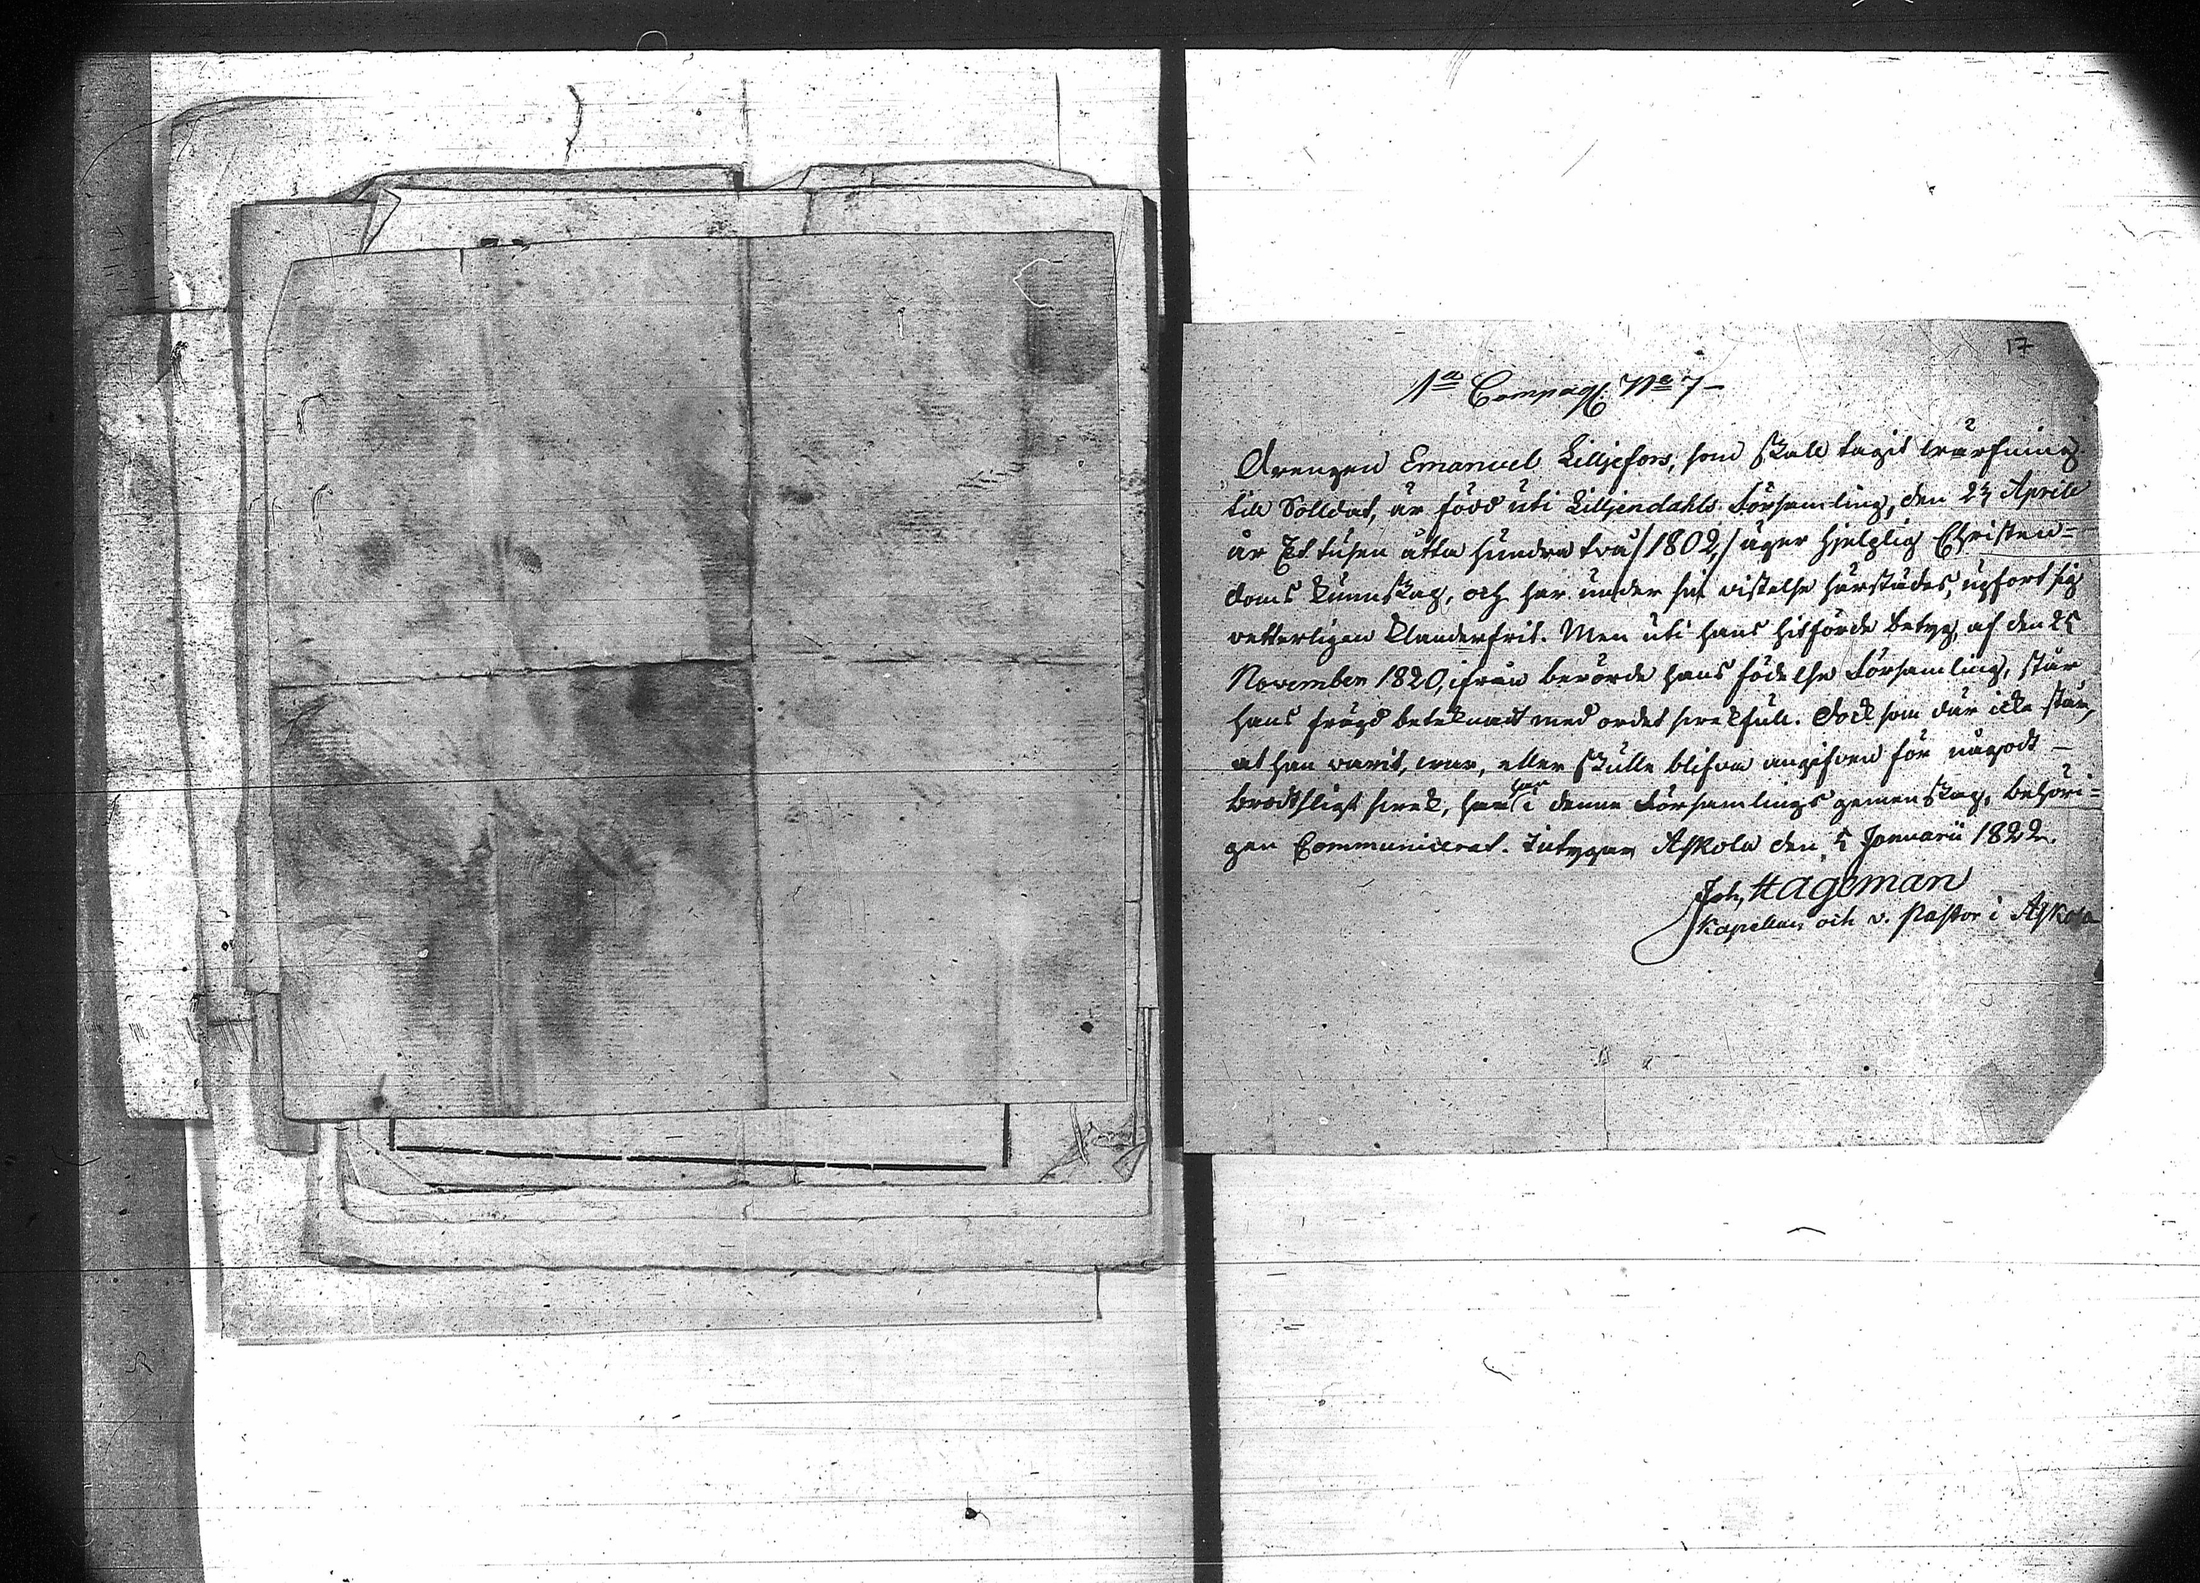 17
1ª Compagᵗ: Nº 7 –
Drengen Emanuel Lilljefors, som skall tagit wärfning
till Solldat, är född uti Lilljendahls Församling, den 23 Aprill
år Et tusen åtta hundra två /1802,/ äger hjelplig Christen=
doms kunnskap, och har under sin vistelse härstädes, upfört sig
vetterligen klanderfrit. Men uti hans hitförde betyg, af den 25
November 1820, ifrån berörde hans födelse Församling, står
hans frägd betecknadt med ordet . Dock som där icke står,
at han varit, war, eller skulle blifva angifven för någodt –
brottsligt , har han i denne Församlings gemenskap, behöri=
gen Communicerat. Intygar Askola den 5 Januarii 1822.
Joh, Hageman
Kapellan och v. Pastor i Askola